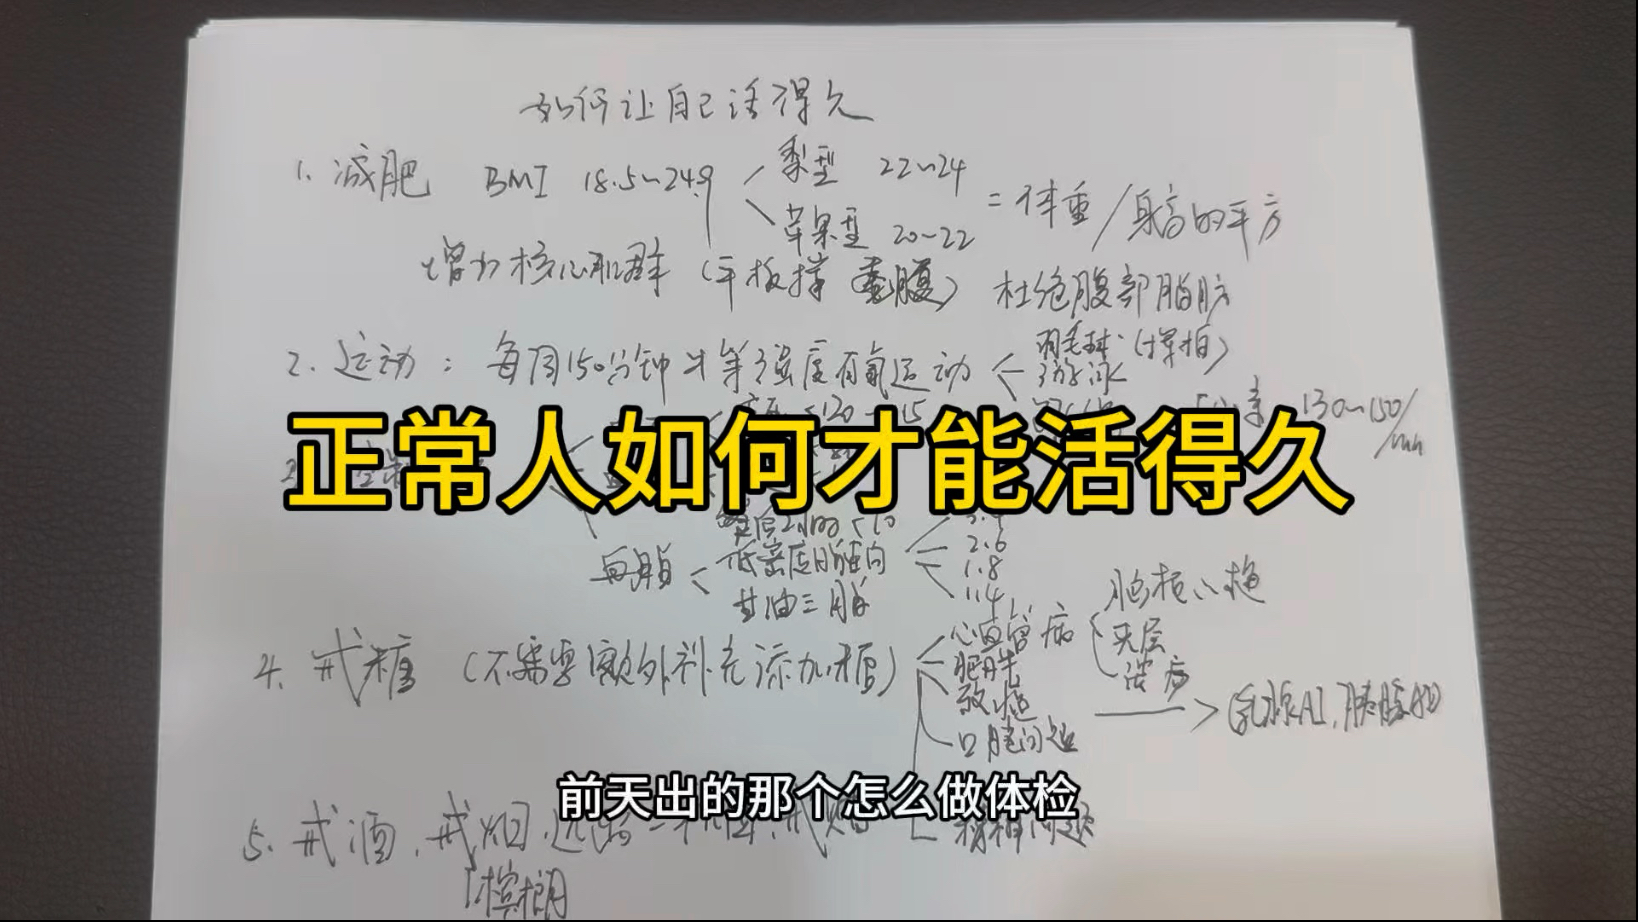 如何让自己活得久
1. 减肥 BMI 18.5~24.9 梨型 22~24
苹果型 20~22 = 体重/身高的平方
增加核心肌群（平板撑 卷腹） 杜绝腹部脂肪
2. 运动：每周150分钟中等强度有氧运动 羽毛球（单拍）
游泳
130~150/min
正常人如何才能活得久
2.6
血脂 低密度脂蛋白 1.8
甘油三脂 1.4
4. 戒糖（不需要额外补充添加糖） 心血管病 脑梗心梗
肥胖 夹层
致癌
口腔问题
前天出的那个怎么做体检
5. 戒酒，戒烟，远离二手烟，戒
精神问题
槟榔